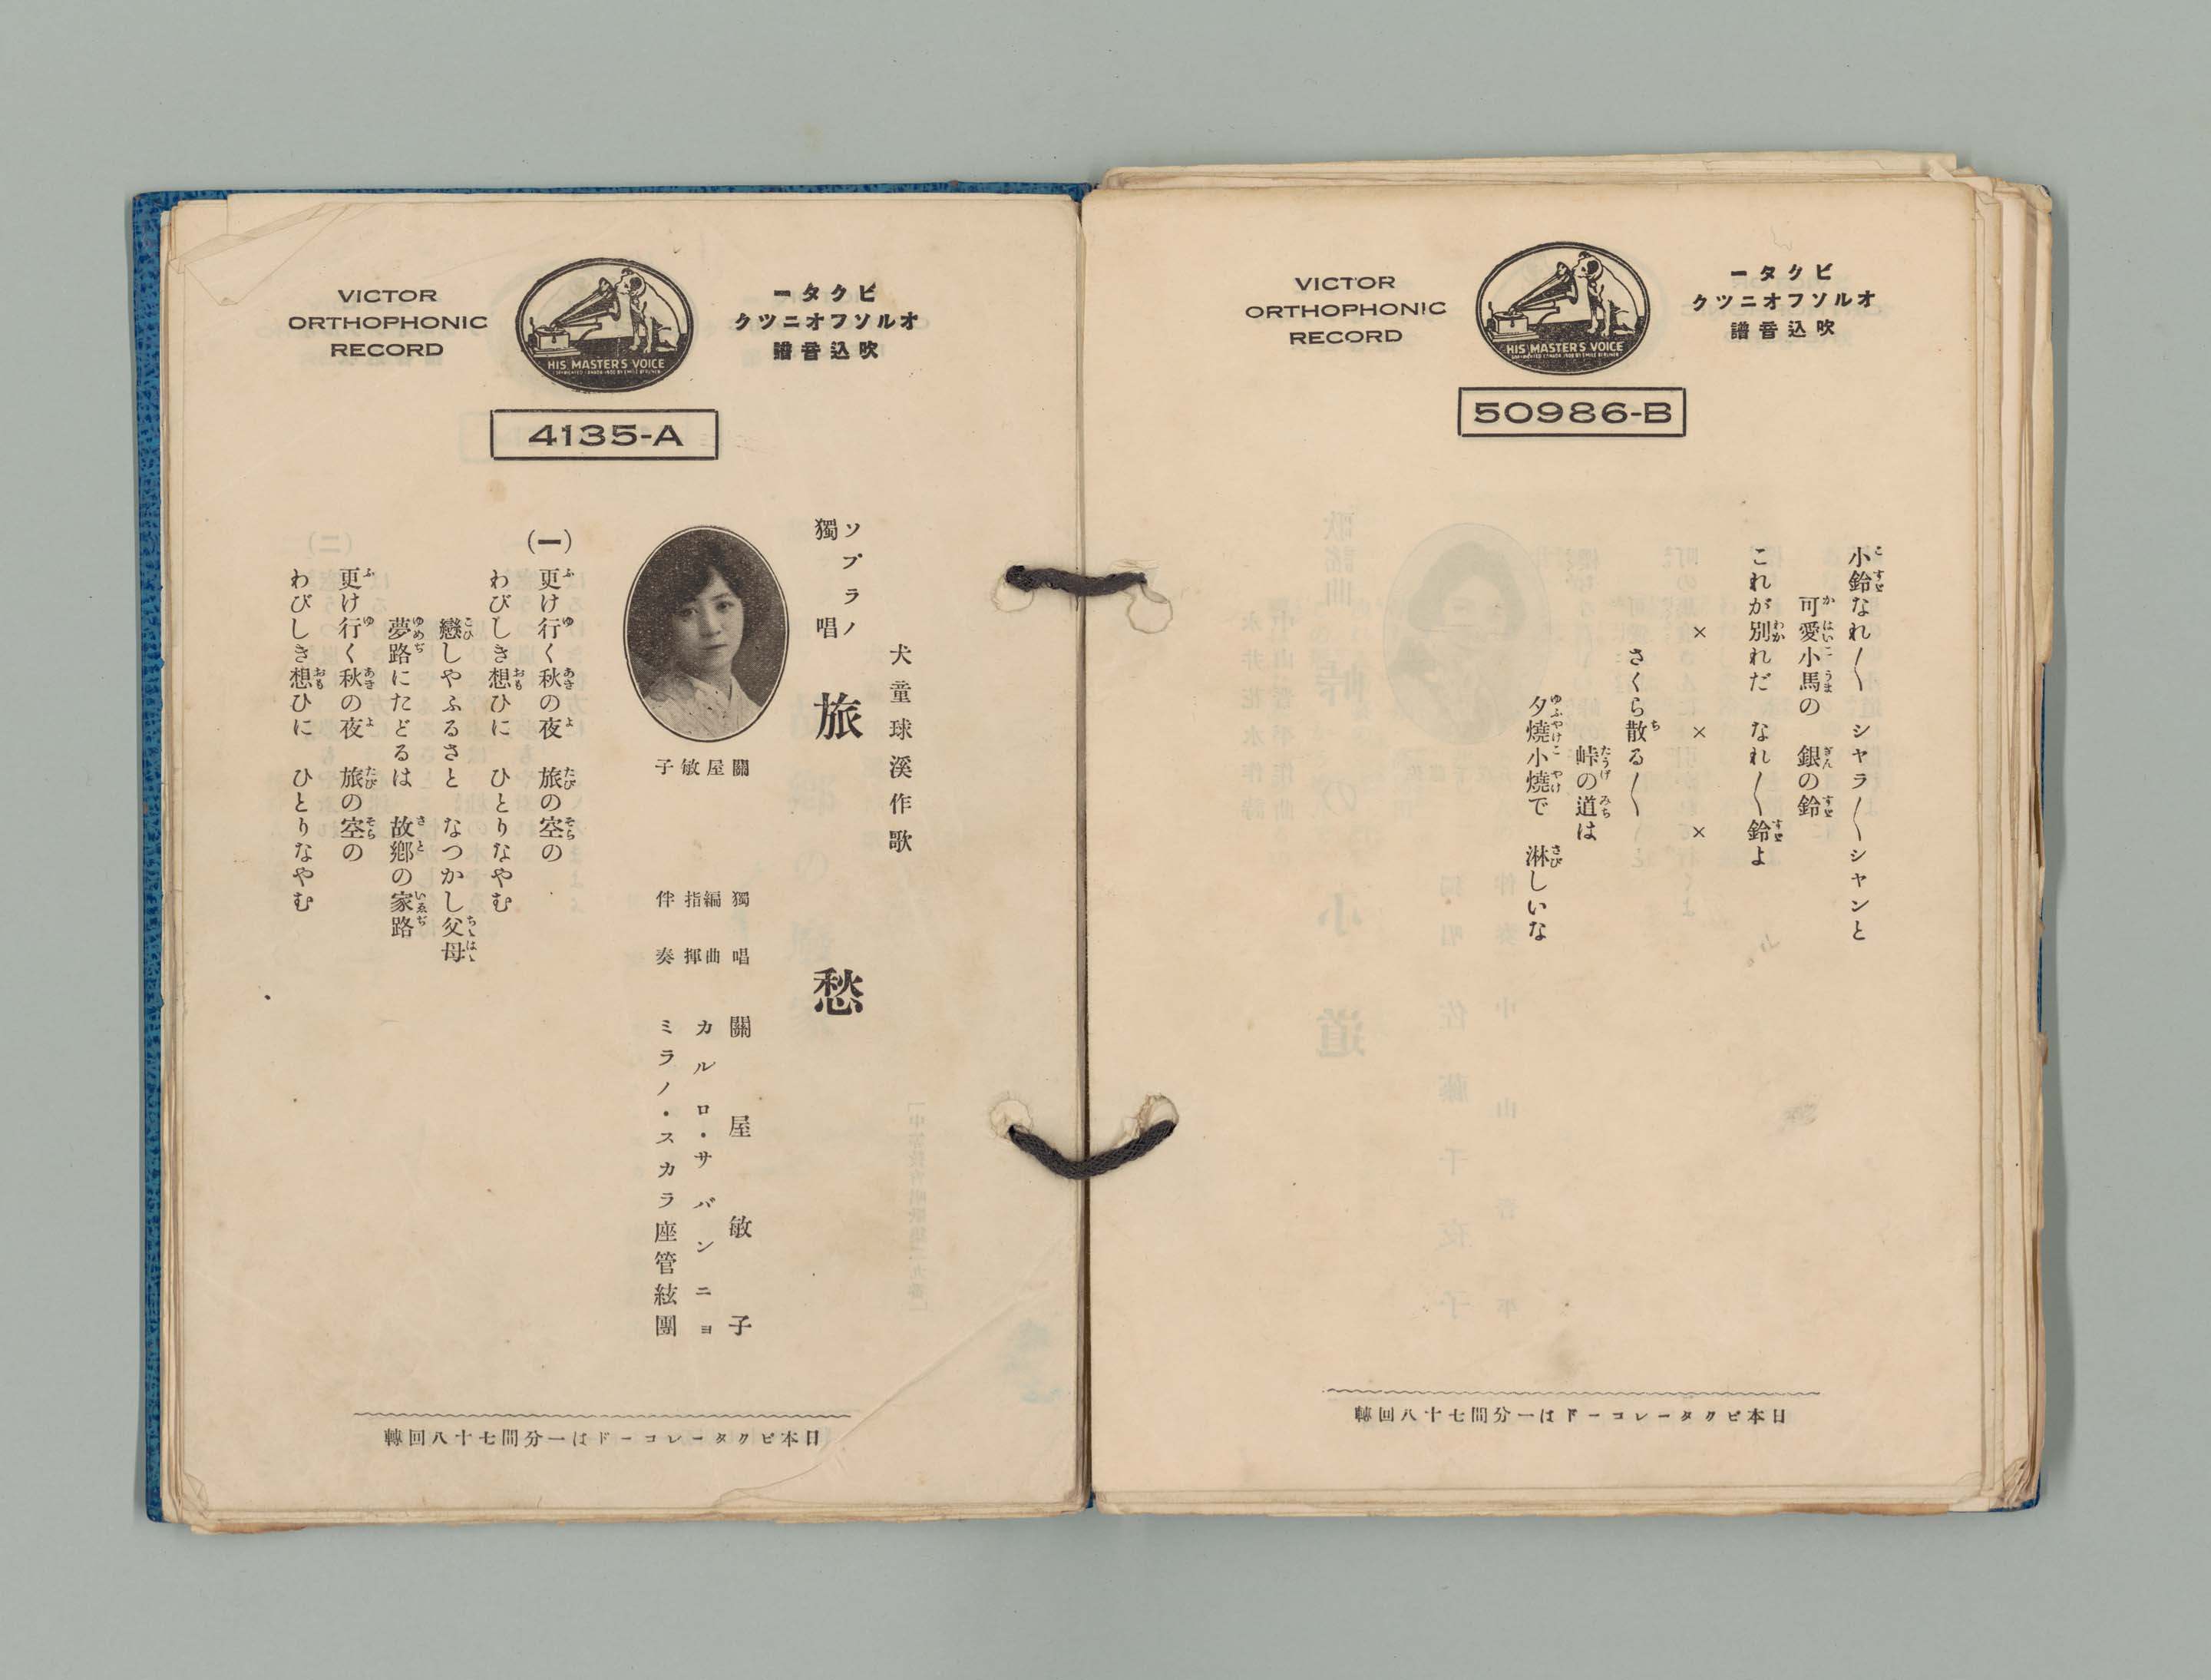 VICTOR
ORTHOPHONIC
RECORD
HIS MASTER'S VOICE
ビクター
オルソフオニツク
吹込音譜
50986-B
小鈴なれ〳〵　シヤラ〳〵シヤンと
可愛小馬の　銀の鈴
これが別れだ　なれ〳〵鈴よ
×　×　×
さくら散る〳〵と
峠の道は
夕燒小燒で　淋しいな
日本ビクターレコードは一分間七十八回轉
VICTOR
ORTHOPHONIC
RECORD
HIS MASTER'S VOICE
ビクター
オルソフオニツク
吹込音譜
4135-A
犬童球溪作歌
ソプラノ
獨唱
旅愁
關屋敏子
獨唱　關屋敏子
編曲
指揮　カルロ・サバンニヨ
伴奏　ミラノ・スカラ座管絃團
(一)
更け行く秋の夜　旅の空の
わびしき想ひに　ひとりなやむ
戀しやふるさと　なつかし父母
夢路にたどるは　故鄕の家路
更け行く秋の夜　旅の空の
わびしき想ひに　ひとりなやむ
日本ビクターレコードは一分間七十八回轉